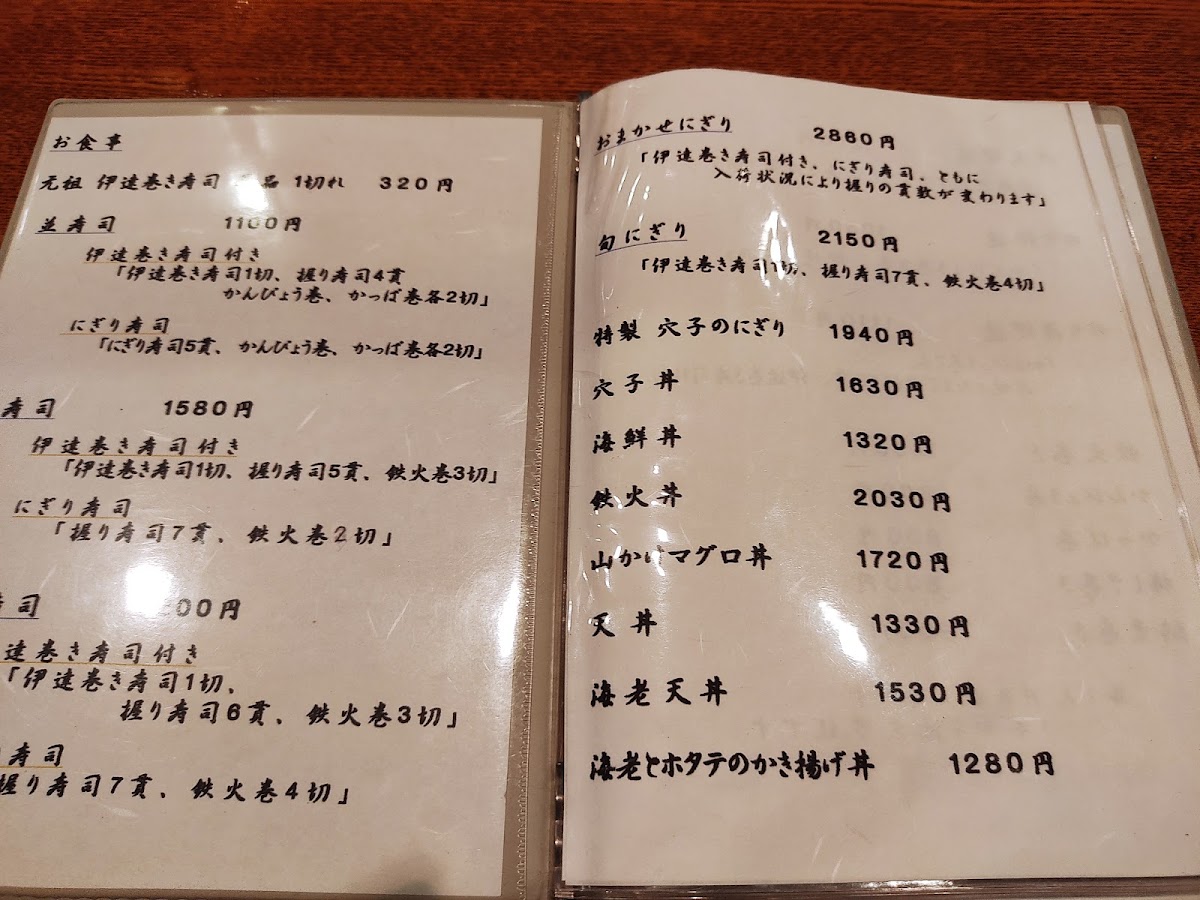 お食事
元祖 伊達巻き寿司 品 1切れ 320円
並寿司 1100円
伊達巻き寿司付き
「伊達巻き寿司1切、握り寿司4貫
かんぴょう巻、かっぱ巻各2切」
にぎり寿司
「にぎり寿司5貫、かんぴょう巻、かっぱ巻各2切」
寿司 1580円
伊達巻き寿司付き
「伊達巻き寿司1切、握り寿司5貫、鉄火巻3切」
にぎり寿司
「握り寿司7貫、鉄火巻2切」
寿司 00円
達巻き寿司付き
「伊達巻き寿司1切、
握り寿司6貫、鉄火巻3切」
寿司
握り寿司7貫、鉄火巻4切」
おまかせにぎり 2860円
「伊達巻き寿司付き、にぎり寿司、ともに
入荷状況により握りの貫数が変わります」
旬にぎり 2150円
「伊達巻き寿司1切、握り寿司7貫、鉄火巻4切」
特製 穴子のにぎり 1940円
穴子丼 1630円
海鮮丼 1320円
鉄火丼 2030円
山かけマグロ丼 1720円
天丼 1330円
海老天丼 1530円
海老とホタテのかき揚げ丼 1280円